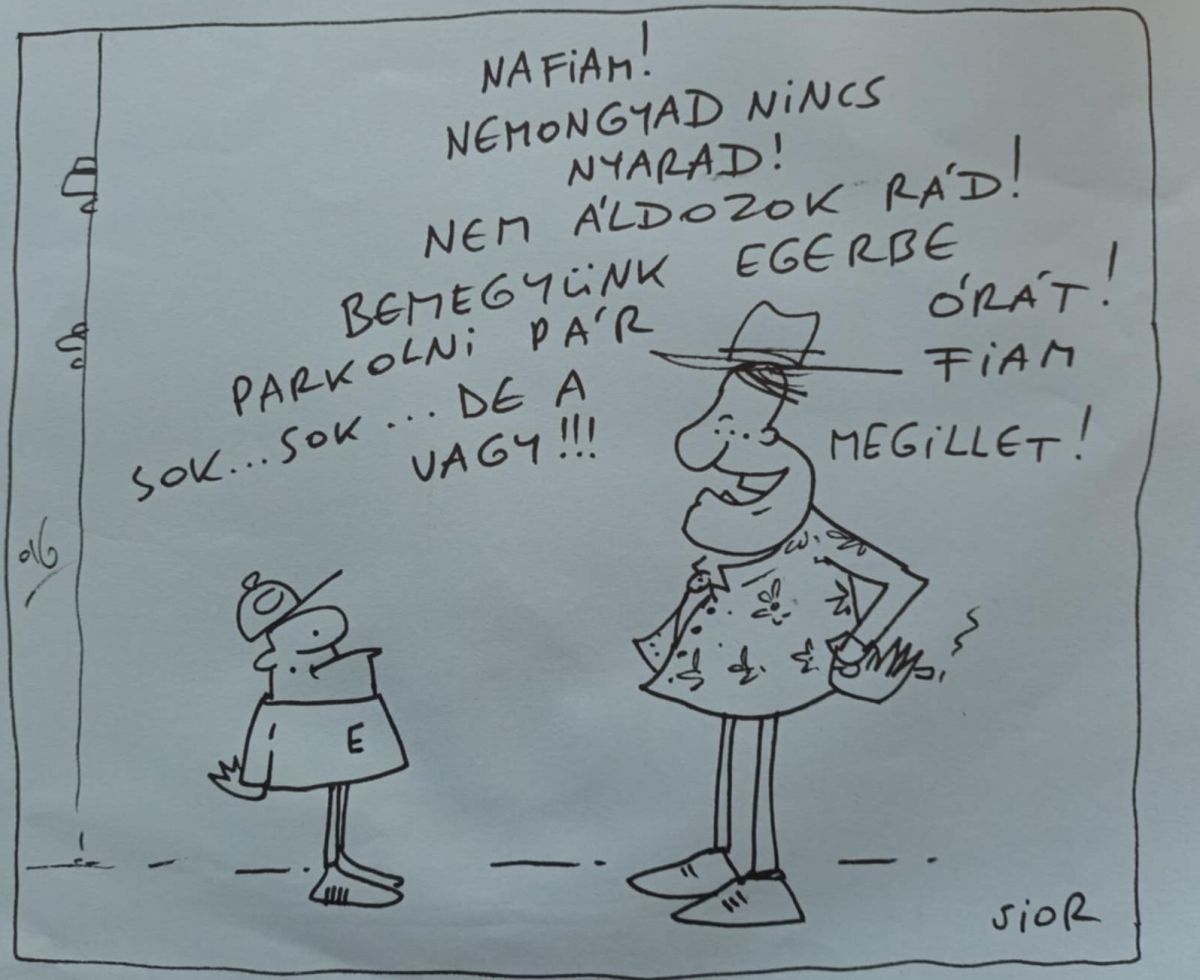 NAFiAM!
NEMONGYAD NiNCS
NYARAD!
NEM ÁLDOZOK RÁD!
BEMEGYÜNK EGERBE
PARKOLNi PÁR ÓRÁT!
SOK...SOK...DE A FiAM
VAGY!!! MEGiLLET!
E
SiOR